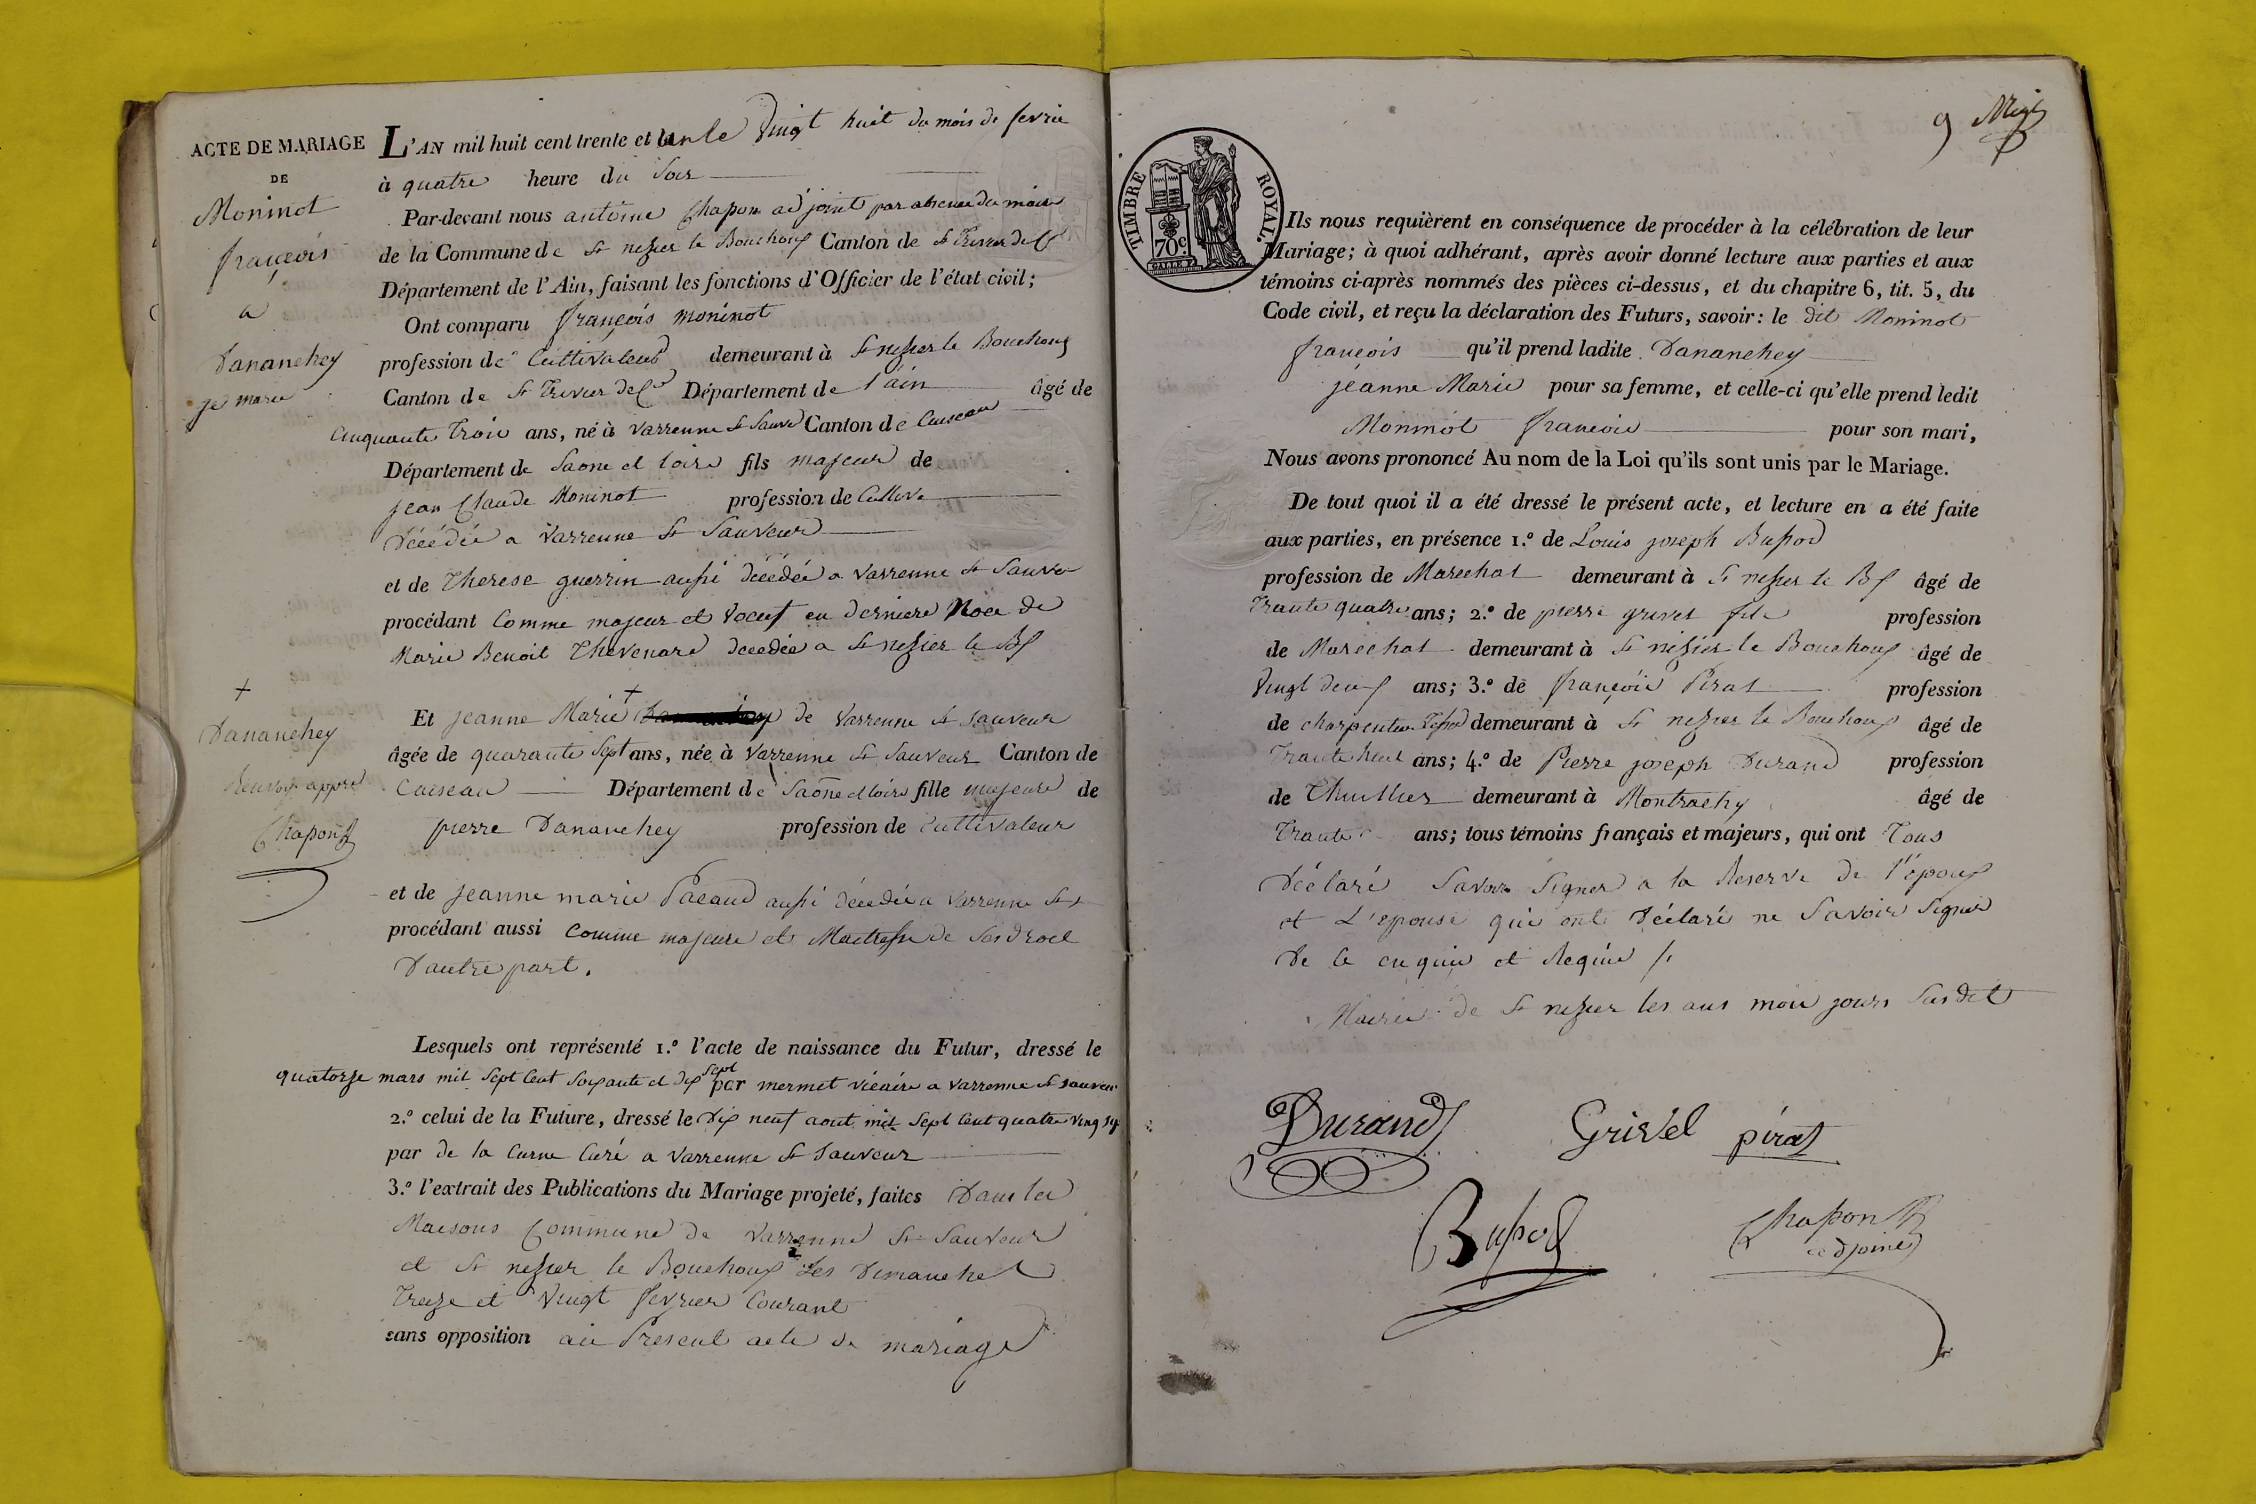 ACTE DE MARIAGE
DE
Moninot
françois
a
Dananchey
je marie
L'AN mil huit cent trente et un le vingt huit du mois de fevrie
à quatre heure du Soir
Par-devant nous antoine Chapon adjoint par absence du maire
de la Commune de St nezier le Bouchoux Canton de St Trivier de C
Département de l'Ain, faisant les fonctions d'Officier de l'état civil;
Ont comparu françois moninot
profession de Cultivateur demeurant à St nezier le Bouchoux
Canton de St Trivier de C Département de l'ain âgé de
Cinquante trois ans, né à Varrenne St Sauve Canton de Cuiseau
Département de Saone et loire fils majeur de
jean Claude Moninot profession de Cultiva
Décédée a Varrenne St Sauveur
et de Therese guerrin aussi décédée a Varrenne St Sauve
procédant Comme majeur et voeuf en derniere Noce de
Marie Benoit Thevenard décédée a St nezier le Bx
+
Dananchey
Renvoy appré
Chapon
Et jeanne Marie + de Varrenne St Sauveur
âgée de quarante Sept ans, née à Varrenne St Sauveur Canton de
Cuiseau Département de Saône et loire fille majeure de
pierre Dananchey profession de Cultivateur
et de jeanne marie Pacaud aussi décédée a Varrenne St s
procédant aussi Comme majeure et Maitresse de Ses droit
D'autre part.
Lesquels ont représenté 1.º l'acte de naissance du Futur, dressé le
quatorze mars mil Sept Cent Soixante et dix Sept par mermet viéaire a Varrenne St Sauveur
2.º celui de la Future, dressé le dix neuf aout mil Sept Cent quatre ving
par de la Curne Curé a Varrenne St Sauveur
3.º l'extrait des Publications du Mariage projeté, faites Dans les
Maisons Commune de Varrenne St Sauveur
et St nezier le Bouchoux Les Dimanche
Treize et Vingt fevrier Courant
sans opposition au Present acte de mariage
9
TIMBRE ROYAL.
70c
Ils nous requièrent en conséquence de procéder à la célébration de leur
Mariage; à quoi adhérant, après avoir donné lecture aux parties et aux
témoins ci-après nommés des pièces ci-dessus, et du chapitre 6, tit. 5, du
Code civil, et reçu la déclaration des Futurs, savoir: le dit Moninot
françois qu'il prend ladite Dananchey
jéanne Marie pour sa femme, et celle-ci qu'elle prend ledit
Moninot françois pour son mari,
Nous avons prononcé Au nom de la Loi qu'ils sont unis par le Mariage.
De tout quoi il a été dressé le présent acte, et lecture en a été faite
aux parties, en présence 1.º de Louis joseph Bussod
profession de Marechal demeurant à St nezier le Bx âgé de
Trante quatre ans; 2.º de pierre grivel fils profession
de Maréchal demeurant à St nézier le Bouchoux âgé de
Vingt deux ans; 3.º de françois Pirat profession
de charpentier demeurant à St nezier le Bouchoux âgé de
Trante huit ans; 4.º de Pierre joseph Durand profession
de Thuillier demeurant à Montrachy âgé de
Trante ans; tous témoins français et majeurs, qui ont Tous
Déclaré Savoir Signer a la Reserve de l'époux
et L'epouse qui ont Déclaré ne Savoir Signer
De Ce enquis et Requis /.
Mairie de St nezier les ans mois jours Susdit
Durand
Grivel
pirat
Bussod
Chapon
adjoint